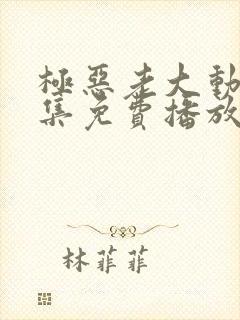 極惡老大動
集免費播放
林菲菲